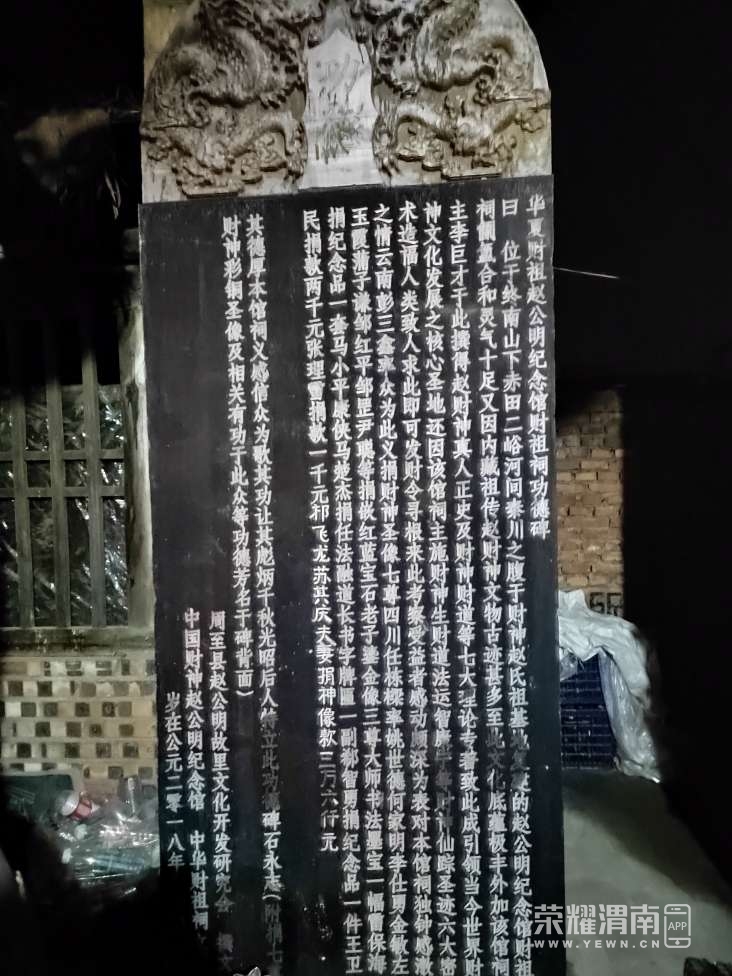 华夏财祖赵公明纪念馆财祖祠功德碑
曰 位于终南山下赤田二峪河间秦川之腹于财神赵氏祖基地 的赵公明纪念馆财祖
祠 合和灵气十足又因内藏祖传赵财神文物古迹甚多至此文化底蕴极丰外加该馆祠
主李巨才于此撰得赵财神真人正史及财神财道等七大理论专著致此成引领当今世界财
神文化发展之核心圣地还因该馆祠主施财神生财道法运智 财神仙踪圣迹六大密
术造福人类致人求此即可发财令寻根来此考察受益者感动颇深为表对本馆祠独钟感激
之情云南彭三鑫率众为此义捐财神圣像七尊四川任栋樑率姚世德何家明李仕勇金敏左
玉霞蒲子谦邹红平邹罡尹聪等捐嵌红蓝宝石老子鎏金像三尊大师书法墨宝一幅雷保海
捐纪念品一套马小平康侠马楚杰捐任法融道长书字牌匾一副郝智勇捐纪念品一件王卫
民捐款两千元张理雷捐款一千元祁飞龙苏其庆夫妻捐神像款三万六仟元
其德厚本馆祠义感信众为歌其功让其彪炳千秋光昭后人特立此功德碑石永志(附捐七
财神彩铜圣像及相关有功于此众等功德芳名于碑背面)
周至县赵公明故里文化开发研究会 撰文
中国财神赵公明纪念馆 中华财祖祠
岁在公元二零一八年
荣耀渭南
APP
WWW.YEWN.CN